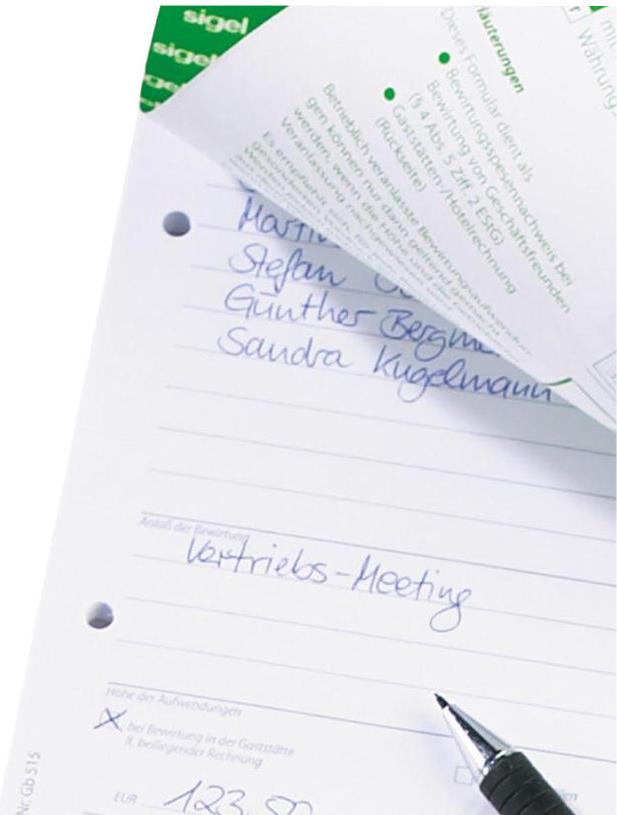 sigel
sigel
läuterungen
Dieses Formular dient als
Bewirtungsspesennachweis bei
Bewirtung von Geschäftsfreunden
(§ 4 Abs. 5 Ziff. 2 EStG)
Gaststätten-/Hotelrechnung
(Rückseite)
Betrieblich veranlasste Bewirtungsaufwendun
gen können nur dann geltend gemacht
werden, wenn die Höhe und die
Veranlassung nachgewiesen
Es empfiehlt sich
mit
Währung
Stefan
Günther Bergm
Sandra Kugelmann
Anlaß der Bewirtung
Vertriebs-Meeting
Höhe der Aufwendungen
X bei Bewirtung in der Gaststätte
lt. beiliegender Rechnung
EUR 123,50
Nr. Gb 515